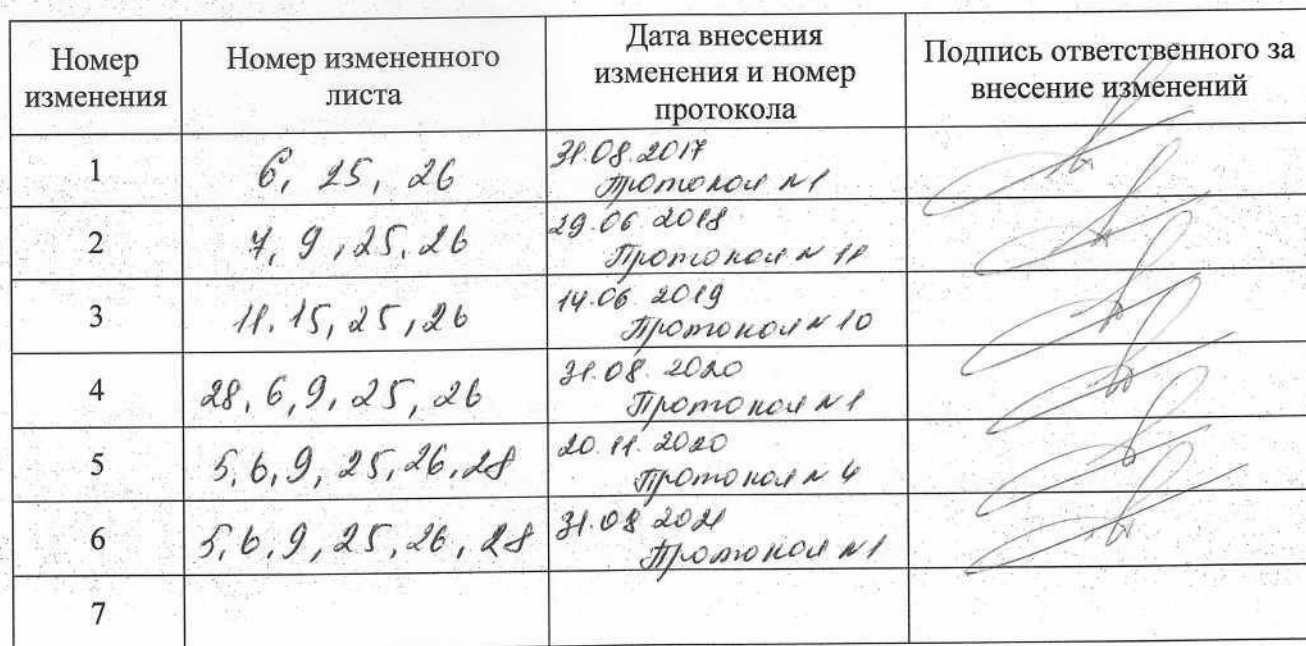 Номер изменения
Номер измененного листа
Дата внесения изменения и номер протокола
Подпись ответственного за внесение изменений
1
6, 25, 26
31.08.2017
Протокол №1
2
7, 9, 25, 26
29.06.2018
Протокол №11
3
11, 15, 25, 26
14.06.2019
Протокол №10
4
28, 6, 9, 25, 26
31.08.2020
Протокол №1
5
5, 6, 9, 25, 26, 28
20.11.2020
Протокол №4
6
5, 6, 9, 25, 26, 28
31.08.2021
Протокол №1
7